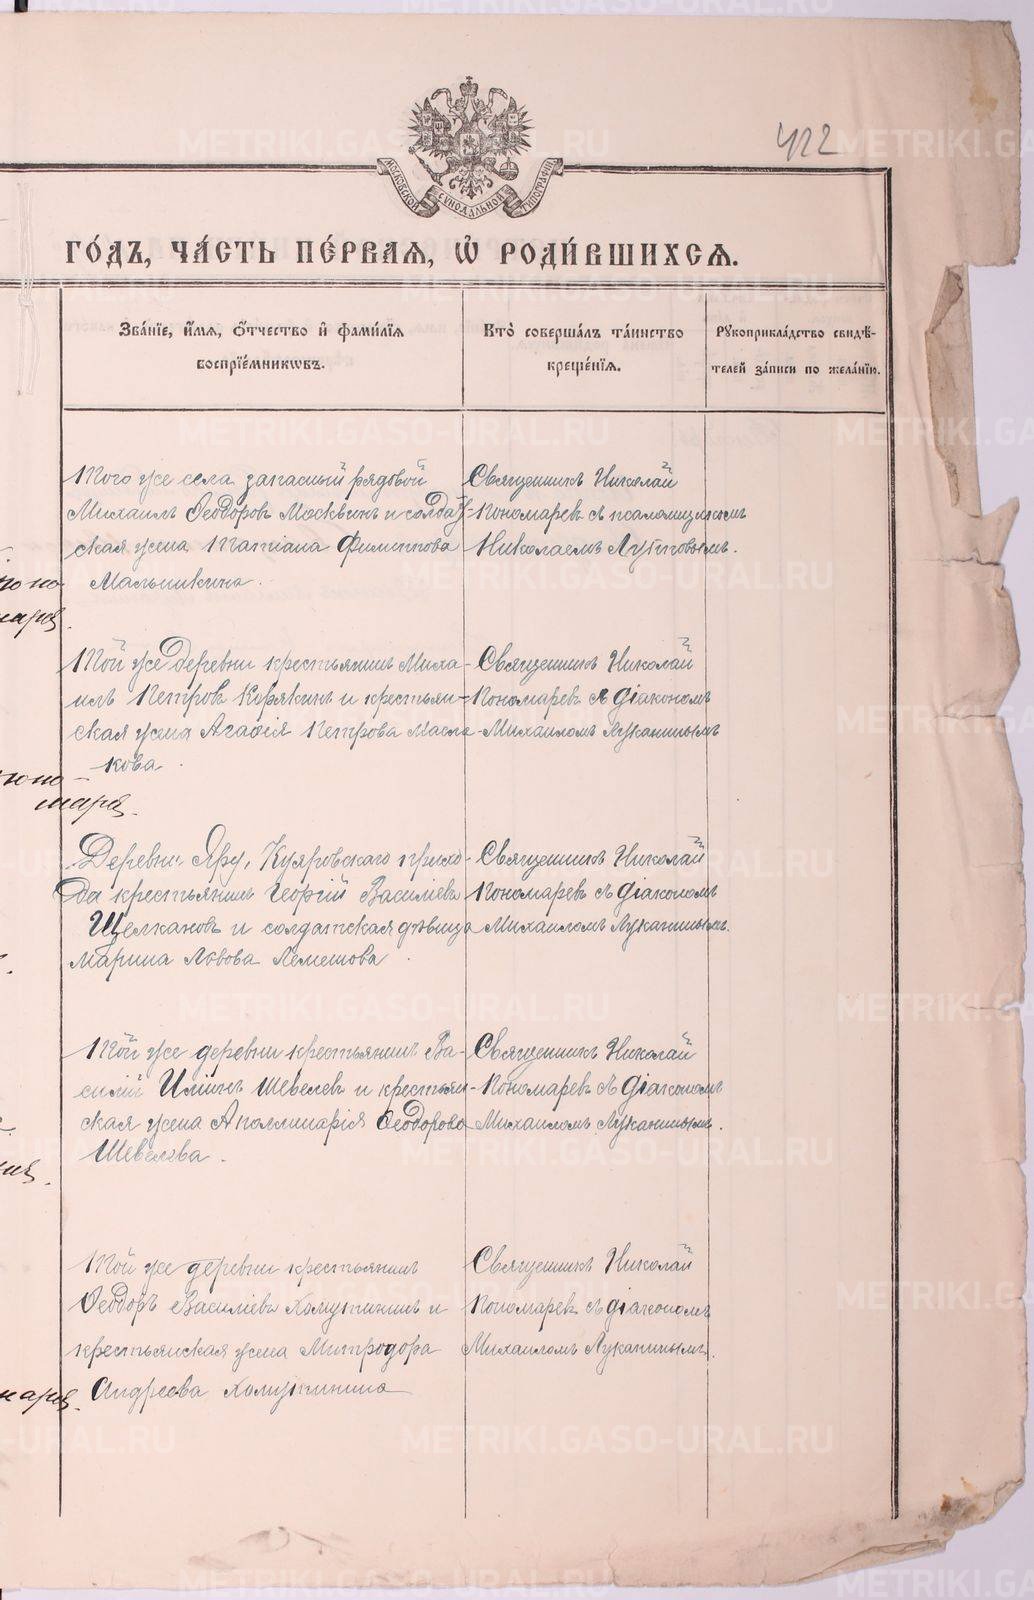 422
МОСКОВСКОЙ СѴНОДАЛЬНОЙ ТИПОГРАФІИ
ГО́ДЪ, ЧА́СТЬ ПЕ́РВАѦ, Ѽ РОДИ́ВШИХСѦ.
Зва́нїе, и҆́мѧ, ѻ҆́тчество и҆ фами́лїѧ
воспрїе́мникѡвъ.
Кто̀ соверша́лъ та́инство
креще́нїѧ.
Рꙋкоприкла́дство свидѣ́-
телей за́писи по жела́нїю.
Того же села запасный рядовой
Михаилъ Ѳеодоровъ Москвинъ и солдат-
ская жена Татіана Филиппова
Мальчикина.
Священникъ Николай
Пономаревъ съ псаломщикомъ
Николаемъ
Той же деревни крестьянинъ Миха-
илъ Петровъ Корякинъ и крестьян-
ская жена Агаѳія Петрова Масла-
кова.
Священникъ Николай
Пономаревъ съ діакономъ
Михаиломъ Луканинымъ
Деревни Яру, Куяровскаго прихо-
да крестьянинъ Георгій Василіевъ
Щелкановъ и солдатская дѣвица
Марина Львова Лемешова.
Священникъ Николай
Пономаревъ съ діакономъ
Михаиломъ Луканинымъ.
Той же деревни крестьянинъ Ва-
силій Иліинъ Шевелевъ и крестьян-
ская жена Аполлинарія Ѳеодорова
Шевелева.
Священникъ Николай
Пономаревъ съ діакономъ
Михаиломъ Луканинымъ.
Той же деревни крестьянинъ
Ѳеодоръ Василіевъ Хомутининъ и
крестьянская жена Митродора
Андреева Хомутинина
Священникъ Николай
Пономаревъ съ діакономъ
Михаиломъ Луканинымъ.
METRIKI.GASO-URAL.RU